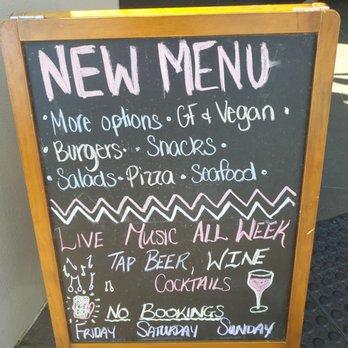 NEW MENU
• More options • GF & Vegan •
• Burgers • • Snacks •
• Salads • Pizza • Seafood •
LIVE MUSIC ALL WEEK
TAP BEER, WINE
COCKTAILS
NO BOOKINGS
FRIDAY SATURDAY SUNDAY